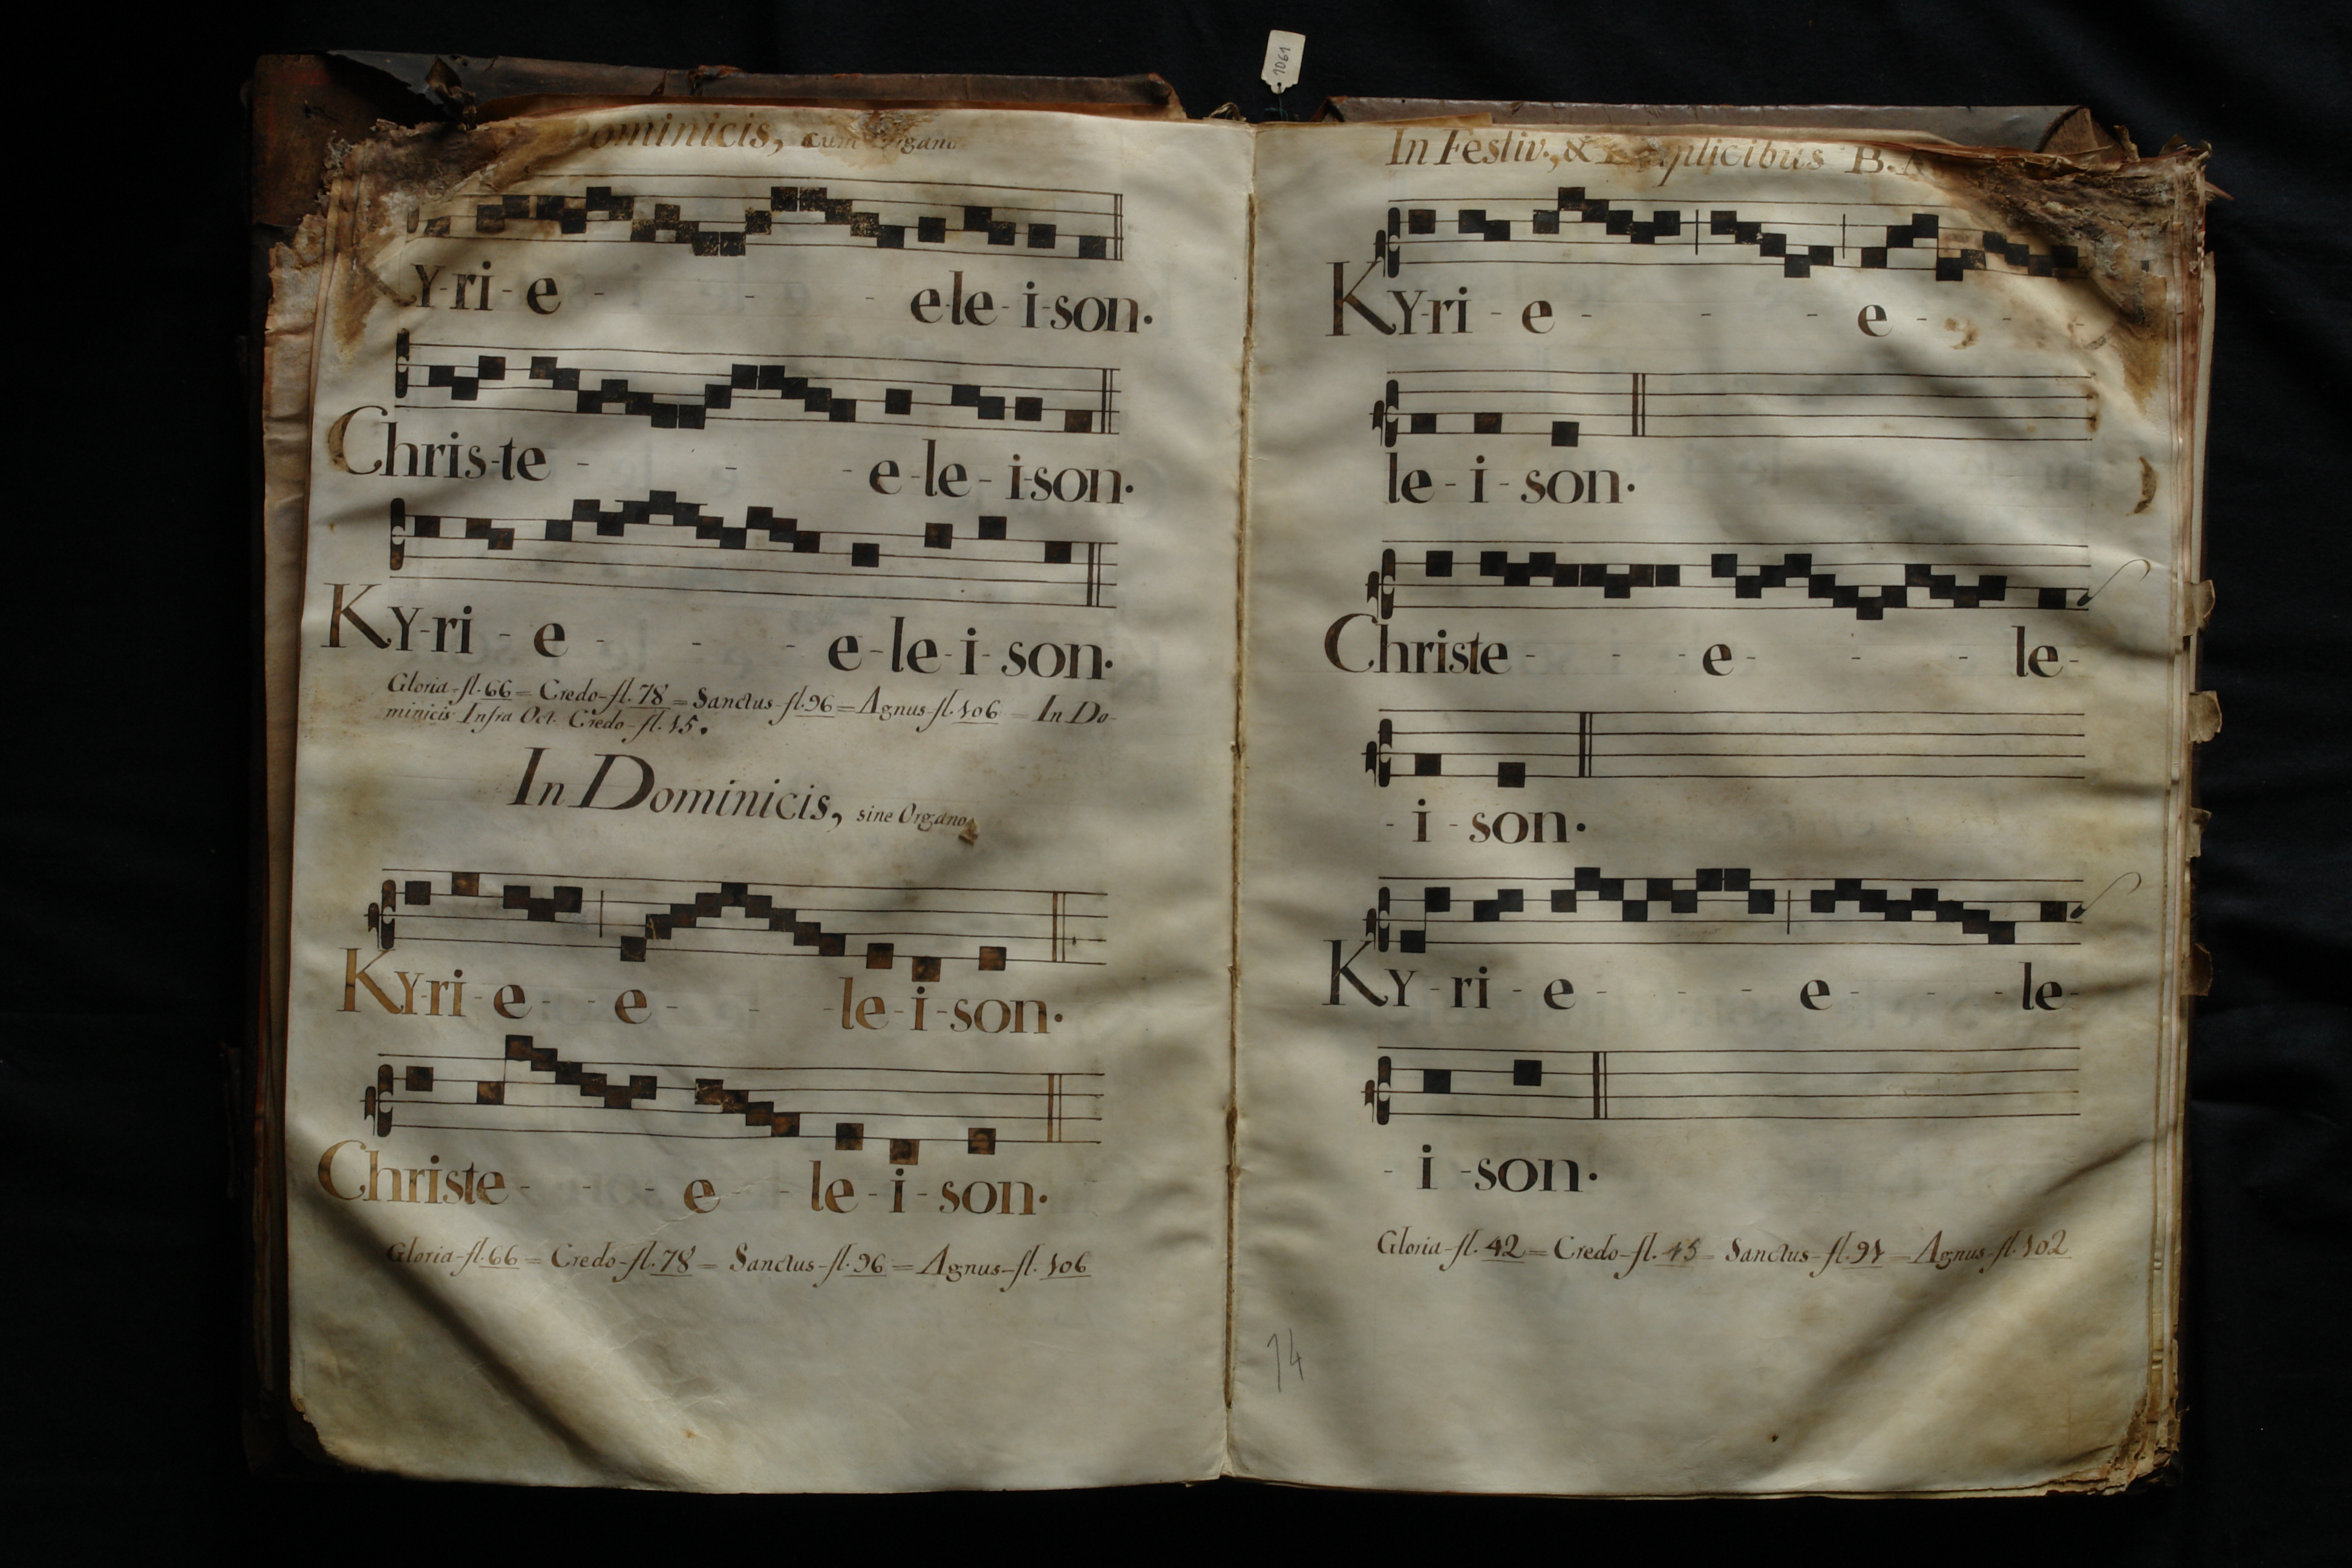 1061
Dominicis, cum Organo
Ky-ri-e - - - e-le-i-son.
Chris-te - - - e-le-i-son.
Ky-ri-e - - - e-le-i-son.
Gloria-fl.66=Credo-fl.78=Sanctus-fl.96=Agnus-fl.106=In Do-
minicis Infra Oct. Credo-fl.15.
In Dominicis, sine Organo.
Ky-ri-e - - e - - - le-i-son.
Christe - - - e - - le-i-son.
Gloria-fl.66=Credo-fl.78=Sanctus-fl.96=Agnus-fl.106
In Festiv., & B.
Ky-ri-e - - - e - - -
le-i-son.
Christe - - - e - - - le-
-i-son.
Ky-ri-e - - - e - - - le-
-i-son.
Gloria-fl.42=Credo-fl.45=Sanctus-fl.91=Agnus-fl.102
14